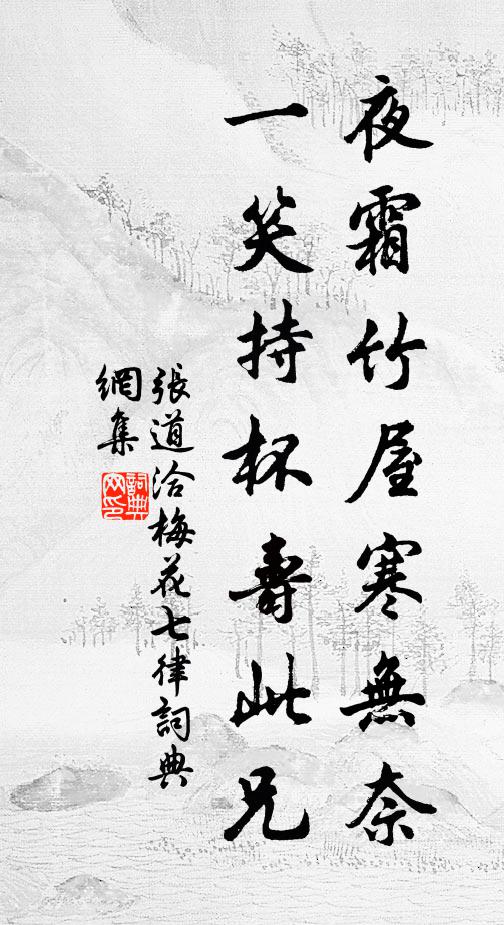 夜霜竹屋寒無奈
一笑持杯壽此兄
張道洽梅花七律詞典
網集
詞典
网印